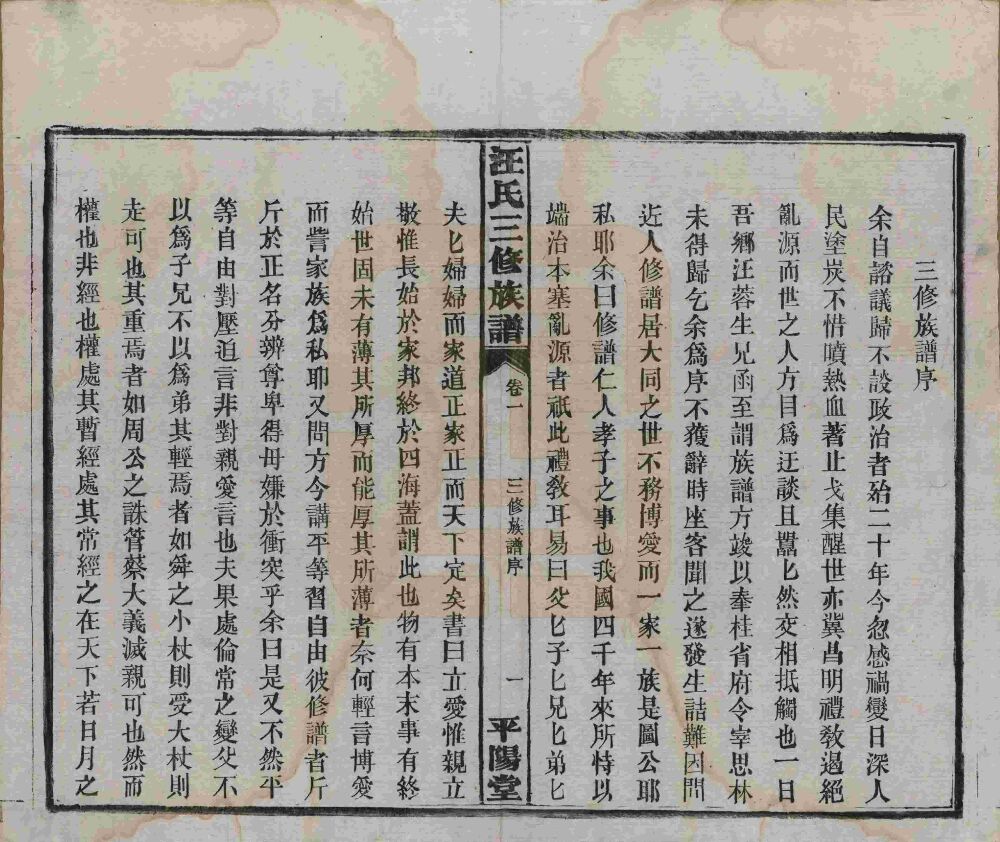 三修族譜序
余自諮議歸不談政治者殆二十年今忽感禍變日深人
民塗炭不惜噴熱血著止戈集醒世亦冀昌明禮教遏絕
亂源而世之人方目爲迂談且囂匕然交相抵觸也一日
吾鄉汪蓉生兄函至謂族譜方竣以奉桂省府令宰思林
未得歸乞余爲序不獲辭時座客聞之遂發生詰難因問
近人修譜居大同之世不務博愛而一家一族是圖公耶
私耶余曰修譜仁人孝子之事也我國四千年來所恃以
端治本塞亂源者祇此禮教耳易曰父匕子匕兄匕弟匕
汪氏三修族譜
卷一
三修族譜序
一
平陽堂
夫匕婦婦而家道正家正而天下定矣書曰立愛惟親立
敬惟長始於家邦終於四海蓋謂此也物有本末事有終
始世固未有薄其所厚而能厚其所薄者奈何輕言博愛
而訾家族爲私耶又問方今講平等習自由彼修譜者斤
斤於正名分辨尊卑得毋嫌於衝突乎余曰是又不然平
等自由對壓迫言非對親愛言也夫果處倫常之變父不
以爲子兄不以爲弟其輕焉者如舜之小杖則受大杖則
走可也其重焉者如周公之誅管蔡大義滅親可也然而
權也非經也權處其暫經處其常經之在天下若日月之